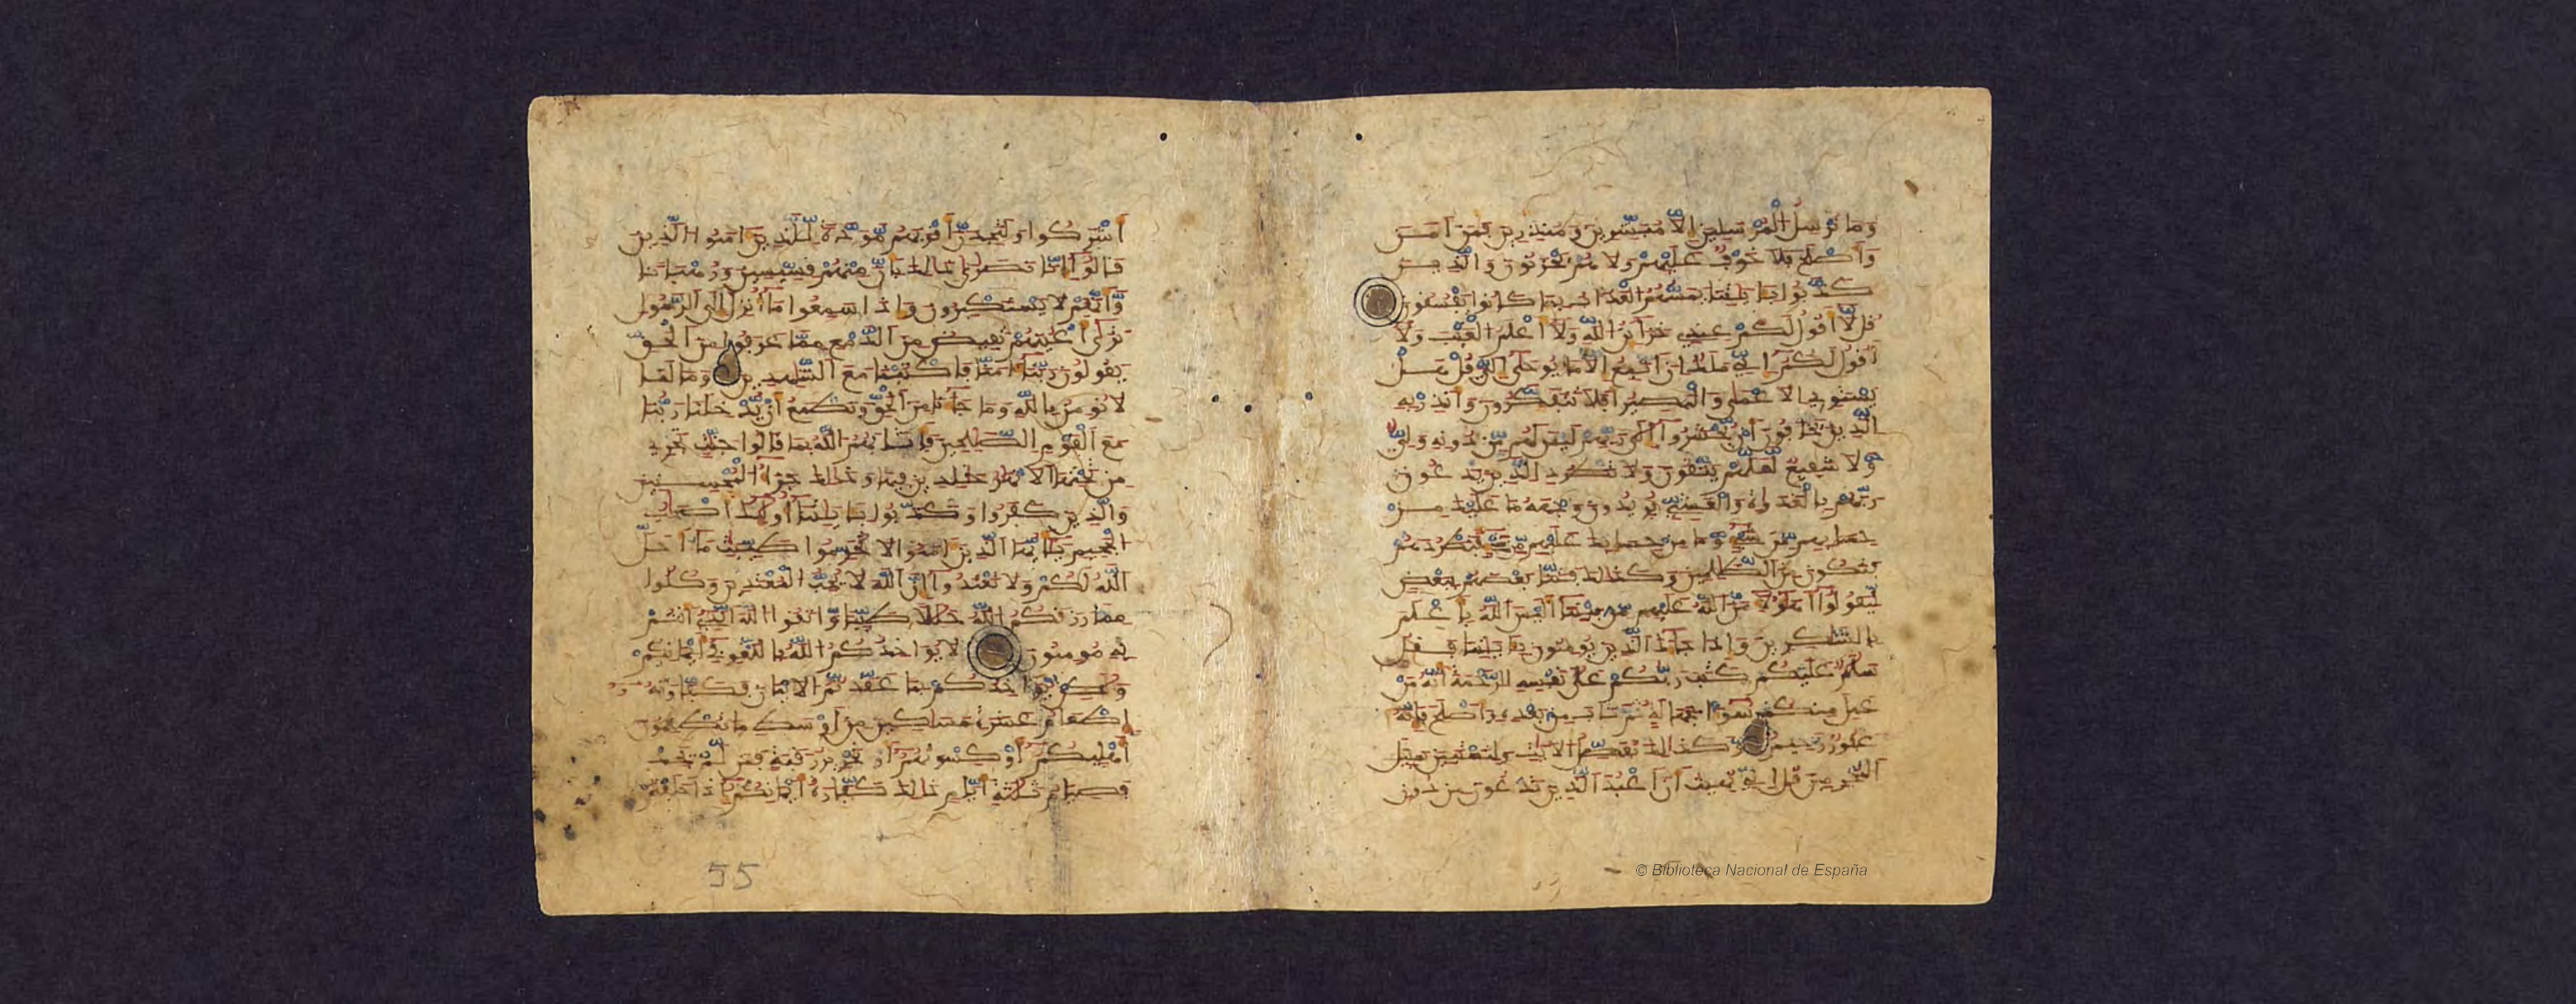 وَمَا نُرْسِلُ الْمُرْسَلِينَ إِلَّا مُبَشِّرِينَ وَمُنذِرِينَ فَمَنَ امَنَ
وَأَصْلَحَ فَلَا خَوْفٌ عَلَيْهِمْ وَلَا هُمْ يَحْزَنُونَ وَالَّذِينَ
كَذَّبُوا بِـَٔايَٰتِنَا يَمَسُّهُمُ الْعَذَابُ بِمَا كَانُوا يَفْسُقُونَ
قُل لَّا أَقُولُ لَكُمْ عِندِي خَزَآئِنُ اللَّهِ وَلَا أَعْلَمُ الْغَيْبَ وَلَا
أَقُولُ لَكُمُ إِنِّي مَلَكٌ إِنَ اتَّبِعُ إِلَّا مَا يُوحَىٰ إِلَيَّ قُلْ هَلْ
يَسْتَوِي الَاعْمَىٰ وَالْبَصِيرُ أَفَلَا تَتَفَكَّرُونَ وَأَنذِرْ بِهِ
الَّذِينَ يَخَافُونَ أَنْ يُّحْشَرُوا إِلَىٰ رَبِّهِمْ لَيْسَ لَهُم مِّن دُونِهِ وَلِيٌّ
وَّلَا شَفِيعٌ لَّعَلَّهُمْ يَتَّقُونَ وَلَا تَطْرُدِ الَّذِينَ يَدْعُونَ
رَبَّهُم بِالْغَدَوٰةِ وَالْعَشِيِّ يُرِيدُونَ وَجْهَهُ مَا عَلَيْكَ مِنْ
حِسَابِهِم مِّن شَيْءٍ وَّمَا مِنْ حِسَابِكَ عَلَيْهِم مِّن شَيْءٍ فَتَطْرُدَهُمْ
فَتَكُونَ مِنَ الظَّٰلِمِينَ وَكَذَٰلِكَ فَتَنَّا بَعْضَهُم بِبَعْضٍ
لِّيَقُولُوا أَهَٰؤُلَاءِ مَنَّ اللَّهُ عَلَيْهِم مِّن بَيْنِنَا أَلَيْسَ اللَّهُ بِأَعْلَمَ
بِالشَّٰكِرِينَ وَإِذَا جَاءَكَ الَّذِينَ يُومِنُونَ بِـَٔايَٰتِنَا فَقُلْ
سَلَٰمٌ عَلَيْكُمْ كَتَبَ رَبُّكُمْ عَلَىٰ نَفْسِهِ الرَّحْمَةَ أَنَّهُ مَنْ
عَمِلَ مِنكُمْ سُوءًا بِجَهَٰلَةٍ ثُمَّ تَابَ مِن بَعْدِهِ وَأَصْلَحَ فَإِنَّهُ
غَفُورٌ رَّحِيمٌ وَكَذَٰلِكَ نُفَصِّلُ الَايَٰتِ وَلِتَسْتَبِينَ سَبِيلَ
الْمُجْرِمِينَ قُلِ انِّي نُهِيتُ أَنَ اعْبُدَ الَّذِينَ تَدْعُونَ مِن دُونِ
أَشْرَكُوا وَلَتَجِدَنَّ أَقْرَبَهُم مَّوَدَّةً لِّلَّذِينَ ءَامَنُوا الَّذِينَ
قَالُوا إِنَّا نَصَٰرَىٰ ذَٰلِكَ بِأَنَّ مِنْهُمْ قِسِّيسِينَ وَرُهْبَانًا
وَّأَنَّهُمْ لَا يَسْتَكْبِرُونَ وَإِذَا سَمِعُوا مَا أُنزِلَ إِلَى الرَّسُولِ
تَرَىٰ أَعْيُنَهُمْ تَفِيضُ مِنَ الدَّمْعِ مِمَّا عَرَفُوا مِنَ الْحَقِّ
يَقُولُونَ رَبَّنَا ءَامَنَّا فَاكْتُبْنَا مَعَ الشَّٰهِدِينَ وَمَا لَنَا
لَا نُومِنُ بِاللَّهِ وَمَا جَاءَنَا مِنَ الْحَقِّ وَنَطْمَعُ أَنْ يُّدْخِلَنَا رَبُّنَا
مَعَ الْقَوْمِ الصَّٰلِحِينَ فَأَثَٰبَهُمُ اللَّهُ بِمَا قَالُوا جَنَّٰتٍ تَجْرِي
مِن تَحْتِهَا الَانْهَٰرُ خَٰلِدِينَ فِيهَا وَذَٰلِكَ جَزَاءُ الْمُحْسِنِينَ
وَالَّذِينَ كَفَرُوا وَكَذَّبُوا بِـَٔايَٰتِنَا أُولَٰئِكَ أَصْحَٰبُ
الْجَحِيمِ يَٰأَيُّهَا الَّذِينَ ءَامَنُوا لَا تُحَرِّمُوا طَيِّبَٰتِ مَا أَحَلَّ
اللَّهُ لَكُمْ وَلَا تَعْتَدُوا إِنَّ اللَّهَ لَا يُحِبُّ الْمُعْتَدِينَ وَكُلُوا
مِمَّا رَزَقَكُمُ اللَّهُ حَلَٰلًا طَيِّبًا وَّاتَّقُوا اللَّهَ الَّذِي أَنتُم
بِهِ مُومِنُونَ لَا يُوَاخِذُكُمُ اللَّهُ بِاللَّغْوِ فِي أَيْمَٰنِكُمْ
وَلَٰكِنْ يُّوَاخِذُكُم بِمَا عَقَّدتُّمُ الَايْمَٰنَ فَكَفَّٰرَتُهُ
إِطْعَامُ عَشَرَةِ مَسَٰكِينَ مِنَ اوْسَطِ مَا تُطْعِمُونَ
أَهْلِيكُمُ أَوْ كِسْوَتُهُمُ أَوْ تَحْرِيرُ رَقَبَةٍ فَمَن لَّمْ يَجِدْ
فَصِيَامُ ثَلَٰثَةِ أَيَّامٍ ذَٰلِكَ كَفَّٰرَةُ أَيْمَٰنِكُمُ إِذَا حَلَفْتُمْ
55
© Biblioteca Nacional de España